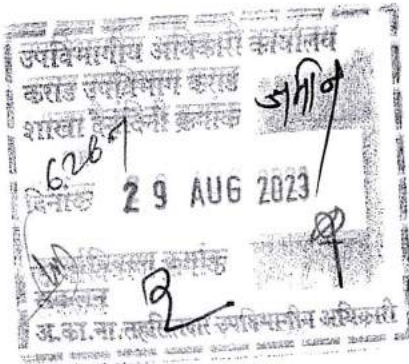 उपविभागीय अधिकारी कार्यालय
कराड उपविभाग कराड
शाखा दैनंदिनी क्रमांक जमीन
दिनांक 29 AUG 2023
क्रमांक
संकलन
अ.का.ना.तहसिलदार उपविभागीय अधिकारी